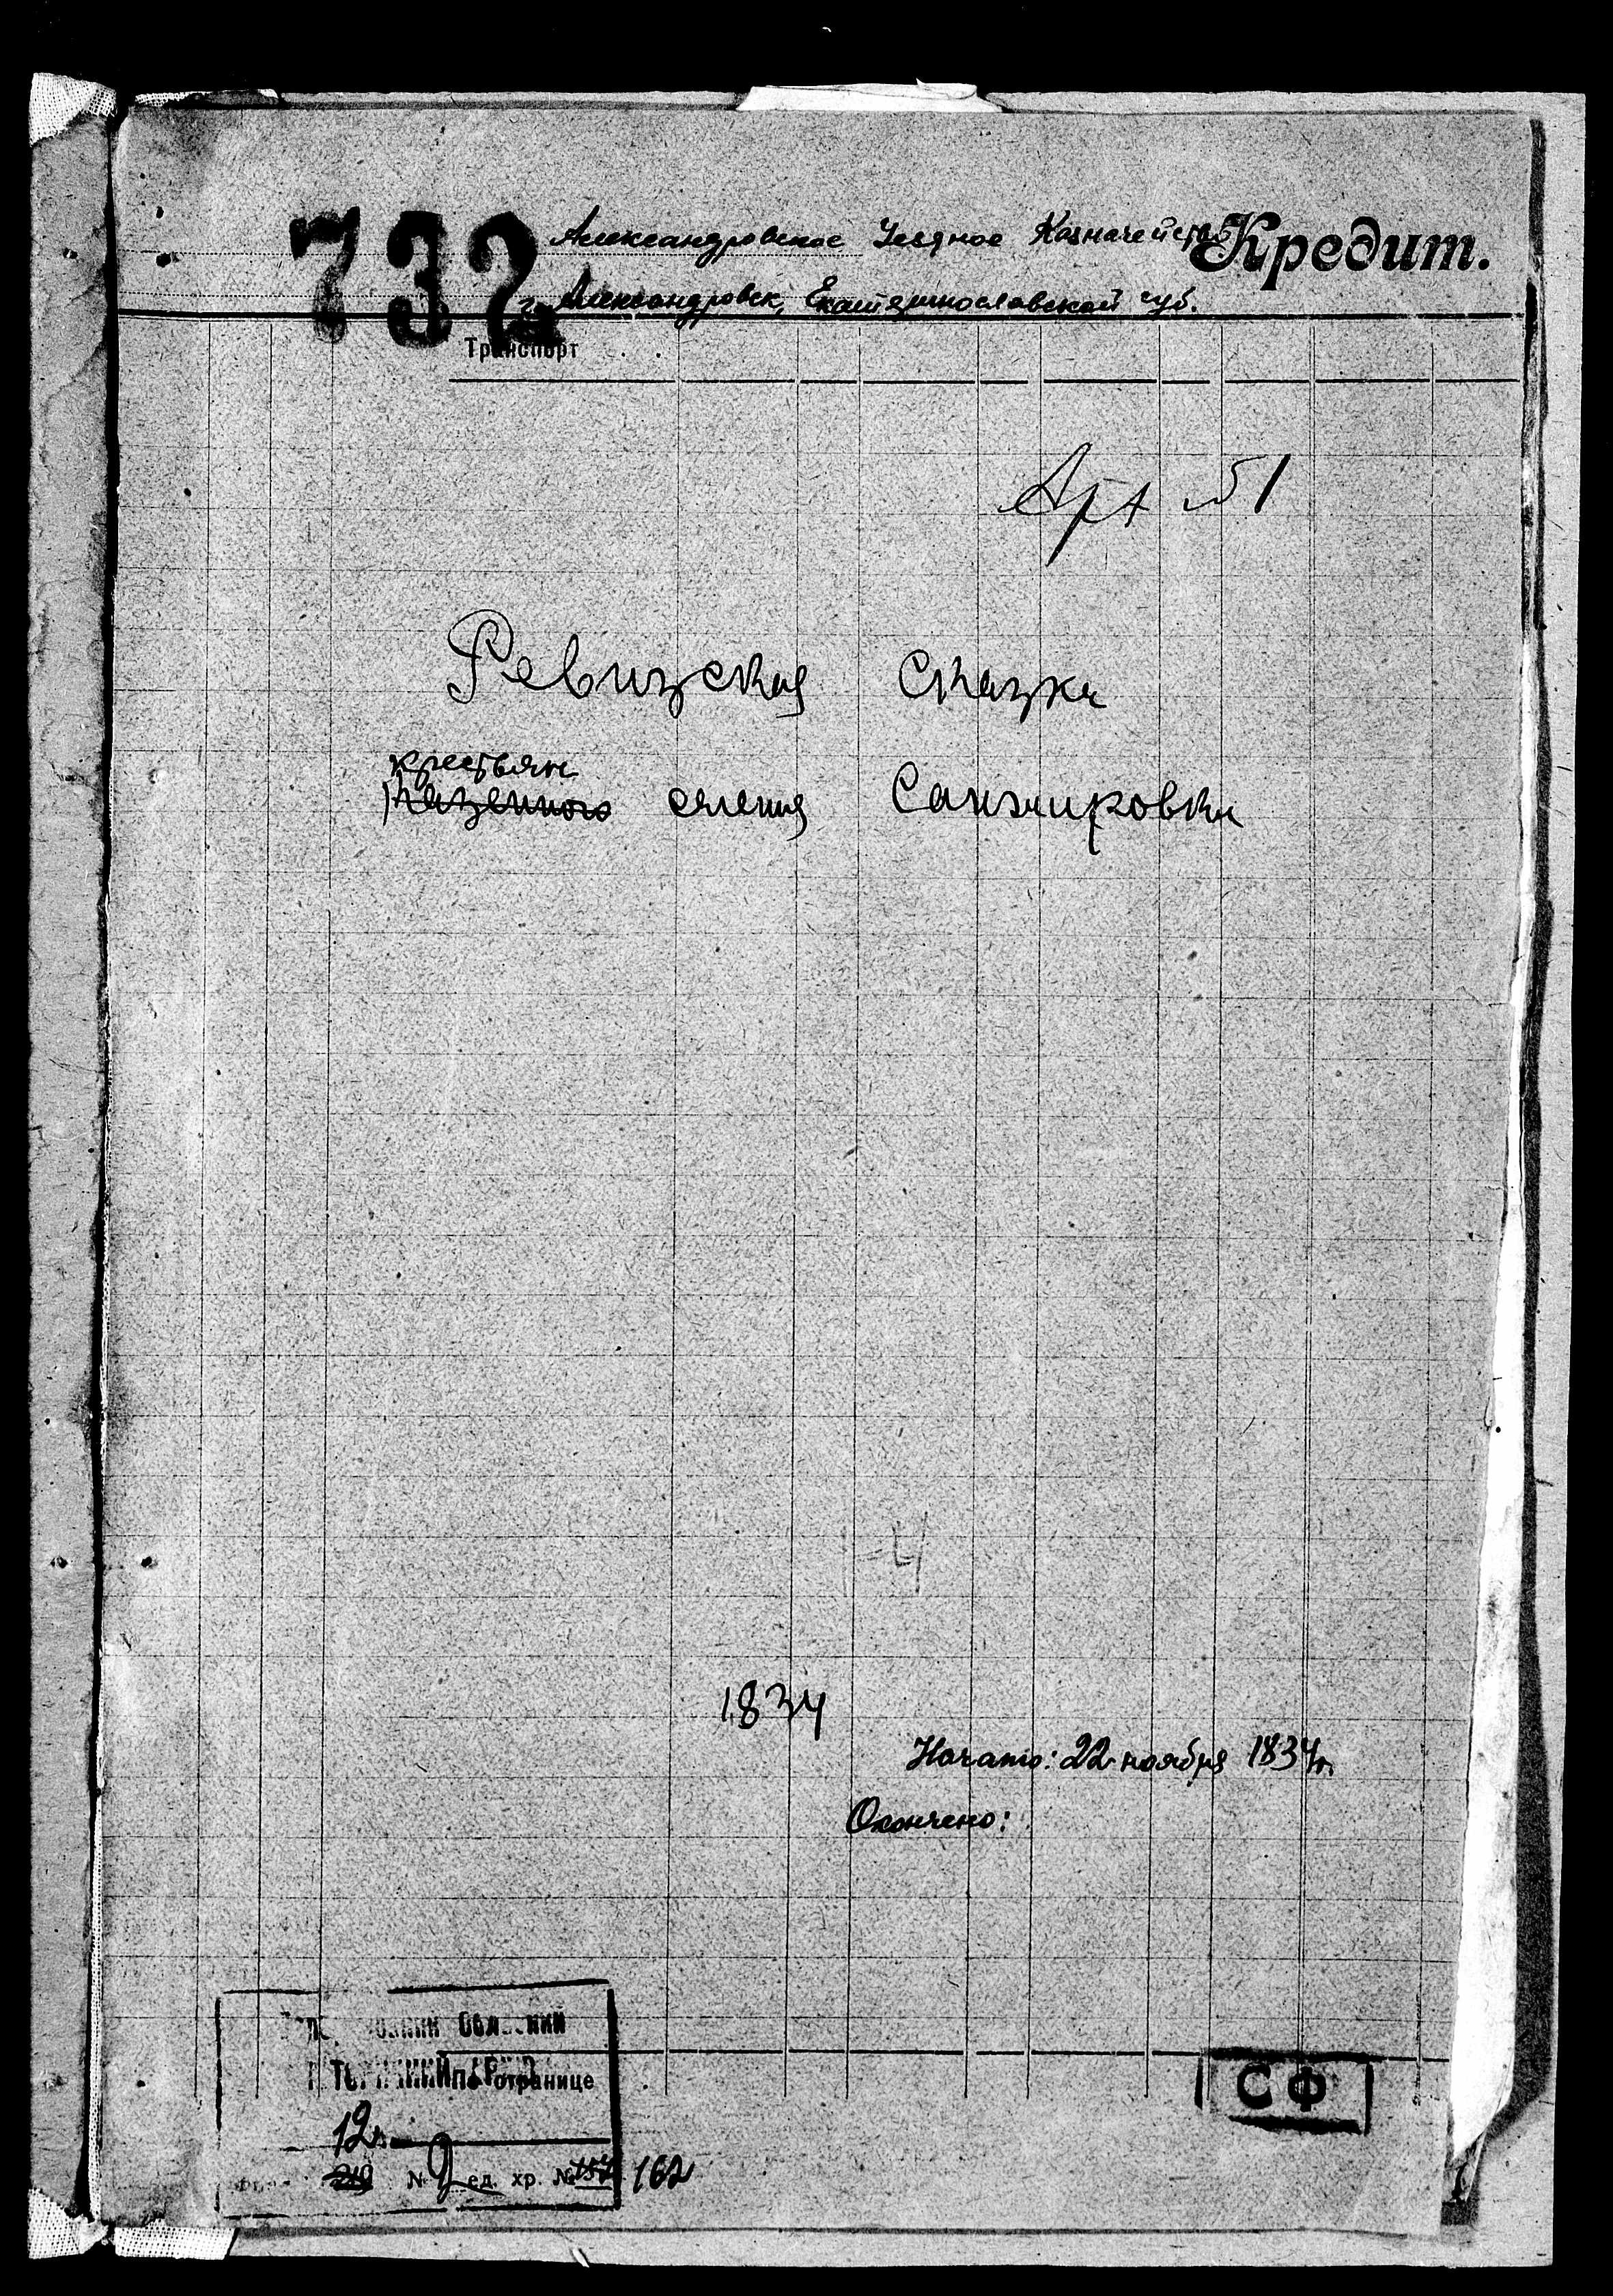 732
Александровское Уездное Казначейство
Кредит.
г. Александровск, Екатеринославской губ.
Транспорт . .
Арх №1
Ревизская сказка
крестьян
казенного селения Санжировки
1834
Начато: 22 ноября 1834г.
Окончено:
странице
СФ
12
210 № 2 ед. хр. № 157 162